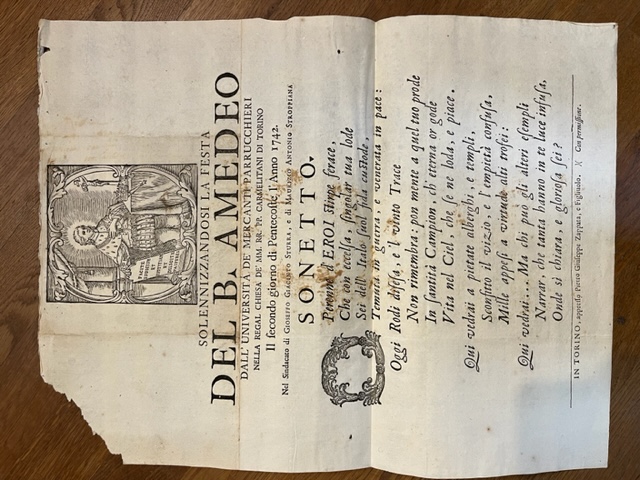 SOLENNIZZANDOSI LA FESTA
DEL B. AMEDEO
DALL' UNIVERSITÀ DE' MERCANTI PARRUCCHIERI
NELLA REGAL CHIESA DE' MM. RR. PP. CARMELITANI DI TORINO
Il secondo giorno di Pentecoste l' Anno 1742.
Nel Sindacato di GIOSEFFO GIACINTO STURRA, e di MAURIZIO ANTONIO STROPPIANA
SONETTO.
D'EROI stirpe ferace,
Che con eccelsa, singolar tua lode
Sei dell' Italo suol fida cuſtode,
Temuta in guerra, e venerata in pace:
Oggi Rodi difeſa, e 'l vinto Trace
Non rimembra: pon mente a quel tuo prode
In ſantità Campion, ch' eterna or gode
Vita nel Ciel, che ſe ne loda, e piace.
Qui vedrai a pietate alberghi, e templi,
Sconfitto il vizio, e l' empietà confuſa,
Mille appeſi a virtude alti trofei:
Qui vedrai... Ma chi può gli alteri eſempli
Narrar, che tanta hanno in te luce infuſa,
Onde sì chiara, e glorioſa ſei?
IN TORINO, appreſſo Pietro Giuſeppe Zappata, e Figliuolo. )( Con permiſſione.